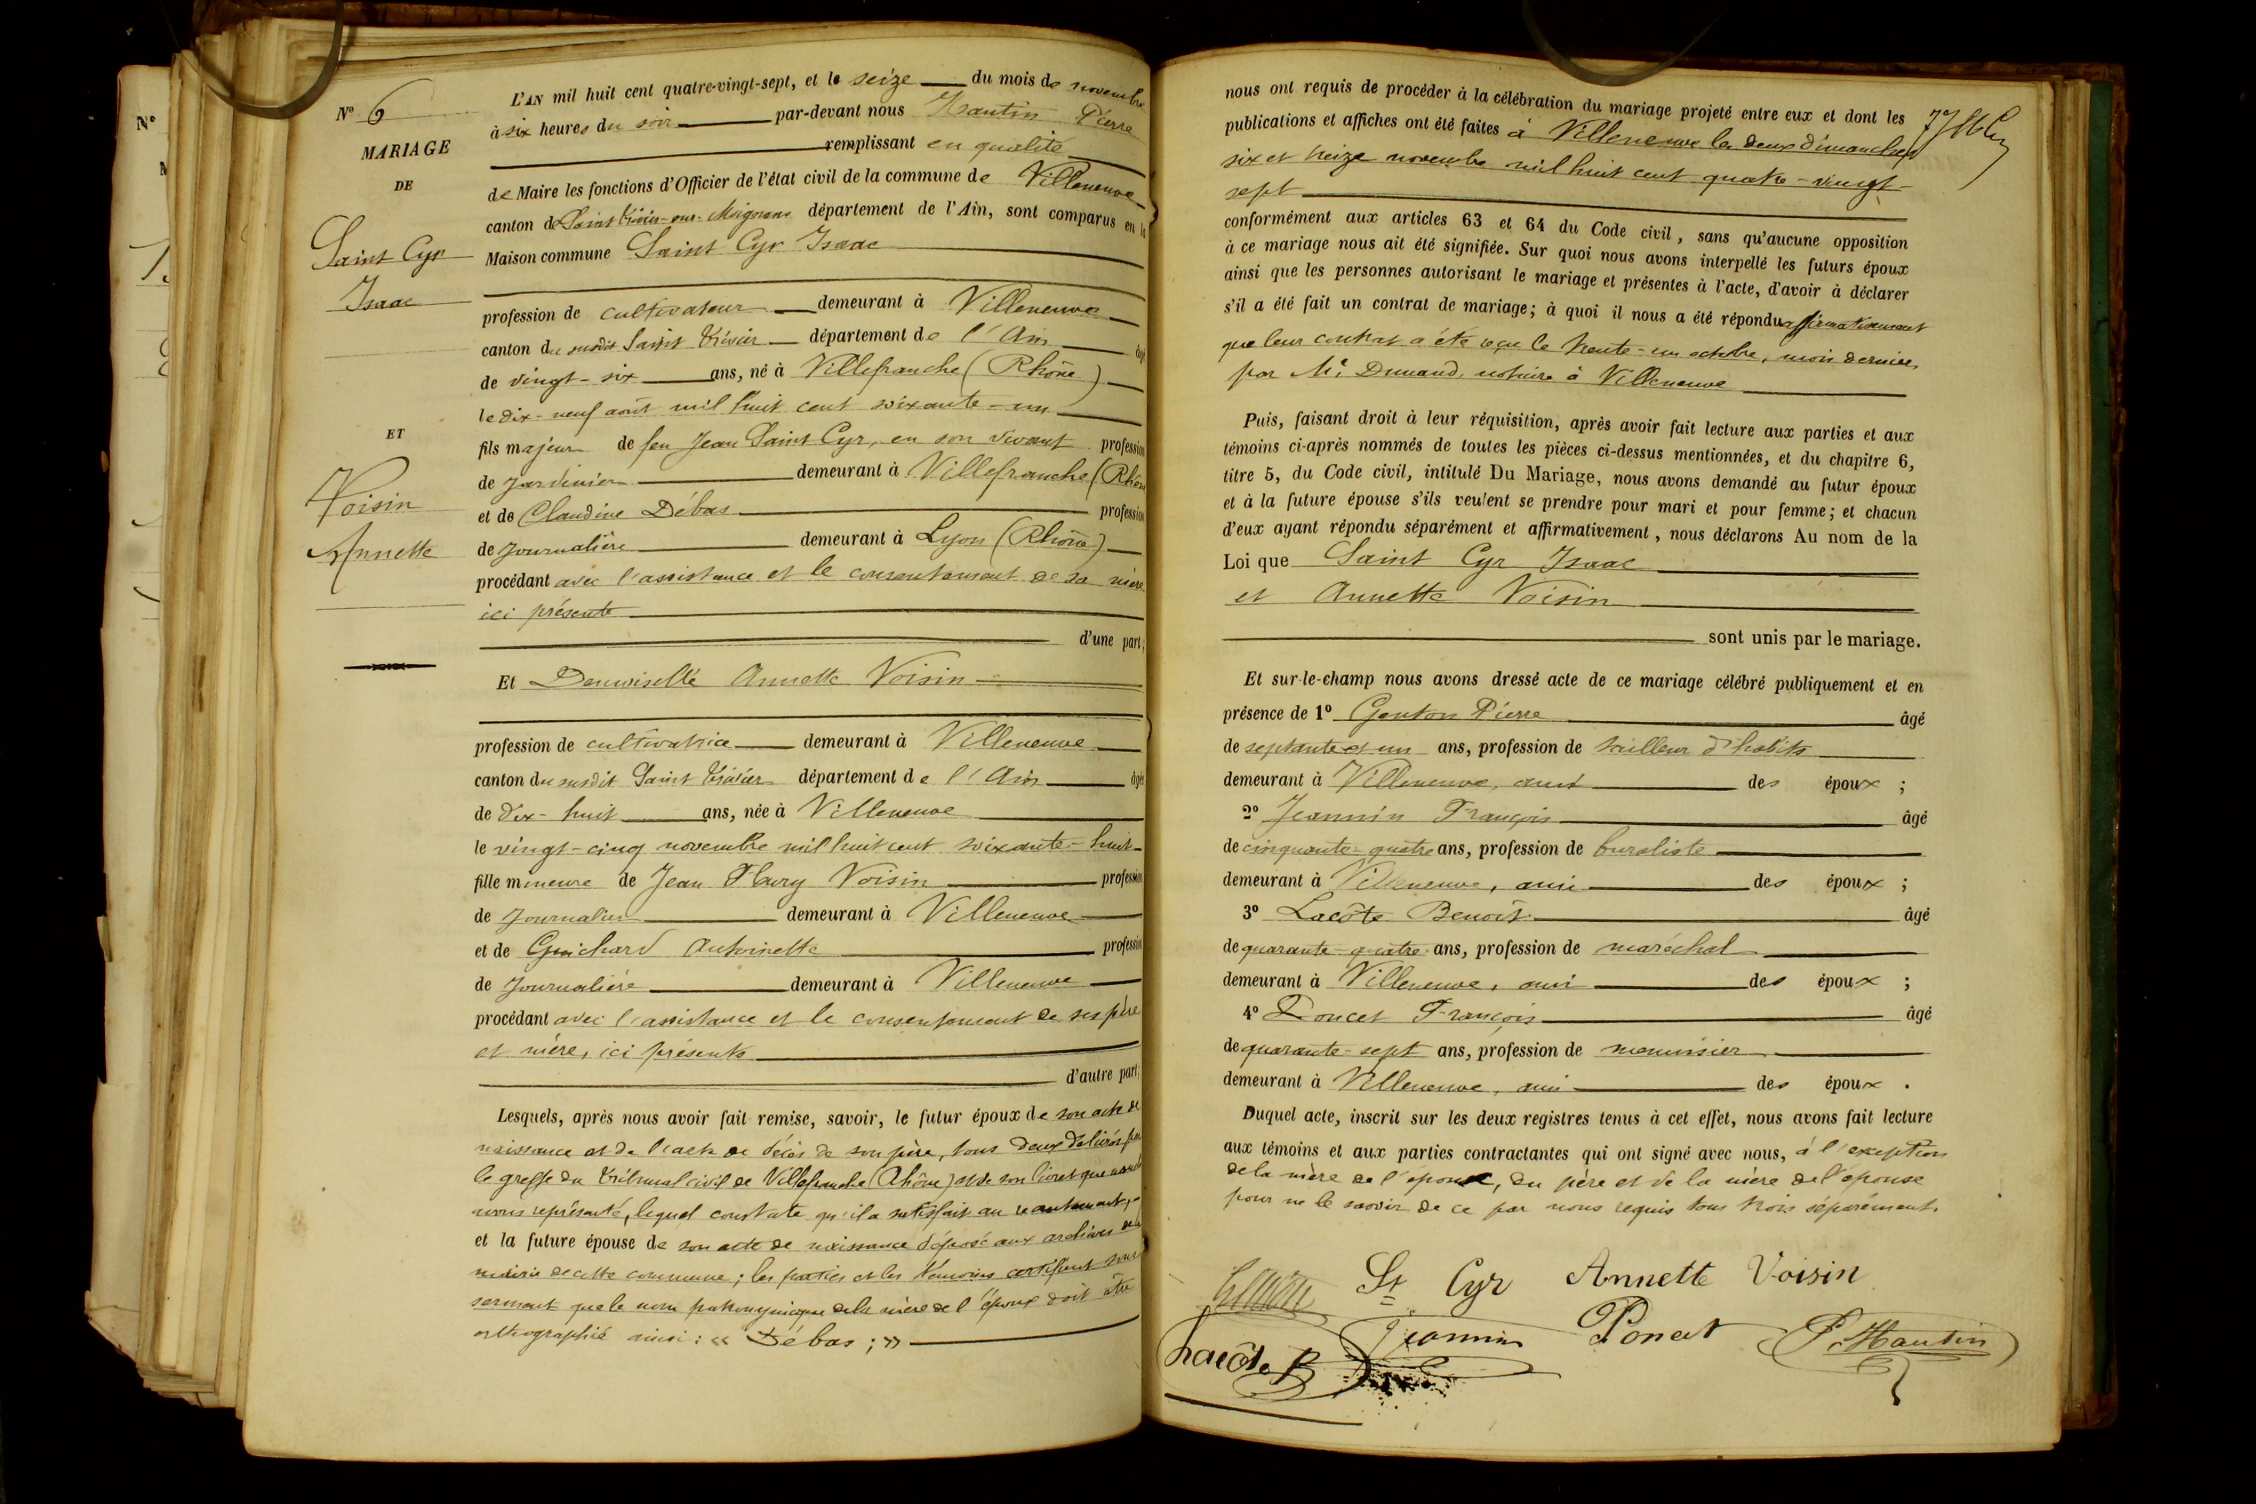 N°
N° 6
MARIAGE
DE
Saint Cyr
Isaac
ET
Voisin
Annette
L'AN mil huit cent quatre-vingt-sept, et le seize du mois de novembre
à six heures du soir par-devant nous Hautin Pierre
remplissant en qualité
de Maire les fonctions d'Officier de l'état civil de la commune de Villeneuve
canton de Saint Trivier-sur-Moignans département de l'Ain, sont comparus en la
Maison commune Saint Cyr Isaac
profession de cultivateur demeurant à Villeneuve
canton du susdit Saint Trivier département de l'Ain âgé
de vingt-six ans, né à Villefranche (Rhône)
le dix-neuf août mil huit cent soixante-un
fils majeur de feu Jean Saint Cyr, en son vivant profession
de jardinier demeurant à Villefranche (Rhône
et de Claudine Débas profession
de journalière demeurant à Lyon (Rhône)
procédant avec l'assistance et le consentement de sa mère
ici présente
d'une part;
Et Demoiselle Annette Voisin
profession de cultivatrice demeurant à Villeneuve
canton du susdit Saint Trivier département de l'Ain âgée
de dix-huit ans, née à Villeneuve
le vingt-cinq novembre mil huit cent soixante-huit
fille mineure de Jean Flury Voisin profession
de journalier demeurant à Villeneuve
et de Guichard Antoinette profession
de journalière demeurant à Villeneuve
procédant avec l'assistance et le consentement de ses père
et mère, ici présents
d'autre part;
Lesquels, après nous avoir fait remise, savoir, le futur époux de son acte de
naissance et de l'acte de décès de son père, tous deux délivrés par
le greffe du Tribunal civil de Villefranche (Rhône) et de son livret que
nous représenté, lequel constate qu'il a satisfait au recrutement,
et la future épouse de son acte de naissance déposé aux archives de la
mairie de cette commune; les parties et les témoins certifient sous
serment que le nom patronymique de la mère de l'époux doit être
orthographié ainsi: « Débas; »
nous ont requis de procéder à la célébration du mariage projeté entre eux et dont les
publications et affiches ont été faites à Villeneuve les deux dimanches
six et treize novembre mil huit cent quatre-vingt-
sept
conformément aux articles 63 et 64 du Code civil, sans qu'aucune opposition
à ce mariage nous ait été signifiée. Sur quoi nous avons interpellé les futurs époux
ainsi que les personnes autorisant le mariage et présentes à l'acte, d'avoir à déclarer
s'il a été fait un contrat de mariage; à quoi il nous a été répondu affirmativement
que leur contrat a été reçu le trente-un octobre, mois dernier,
par Me Dunand, notaire à Villeneuve
Puis, faisant droit à leur réquisition, après avoir fait lecture aux parties et aux
témoins ci-après nommés de toutes les pièces ci-dessus mentionnées, et du chapitre 6,
titre 5, du Code civil, intitulé Du Mariage, nous avons demandé au futur époux
et à la future épouse s'ils veulent se prendre pour mari et pour femme; et chacun
d'eux ayant répondu séparément et affirmativement, nous déclarons Au nom de la
Loi que Saint Cyr Isaac
et Annette Voisin
sont unis par le mariage.
Et sur-le-champ nous avons dressé acte de ce mariage célébré publiquement et en
présence de 1° Genton Pierre âgé
de septante et un ans, profession de tailleur d'habits
demeurant à Villeneuve, ami des époux ;
2° Jeannin François âgé
de cinquante-quatre ans, profession de buraliste
demeurant à Villeneuve, ami des époux ;
3° Lacôte Benoît âgé
de quarante-quatre ans, profession de maréchal
demeurant à Villeneuve, ami des époux ;
4° Poncet François âgé
de quarante-sept ans, profession de menuisier
demeurant à Villeneuve, ami des époux .
Duquel acte, inscrit sur les deux registres tenus à cet effet, nous avons fait lecture
aux témoins et aux parties contractantes qui ont signé avec nous, à l'exception
de la mère de l'époux, du père et de la mère de l'épouse
pour ne le savoir de ce par nous requis tous trois séparément.
St Cyr Annette Voisin
Jeannin Poncet P. Hautin
Lacôte B